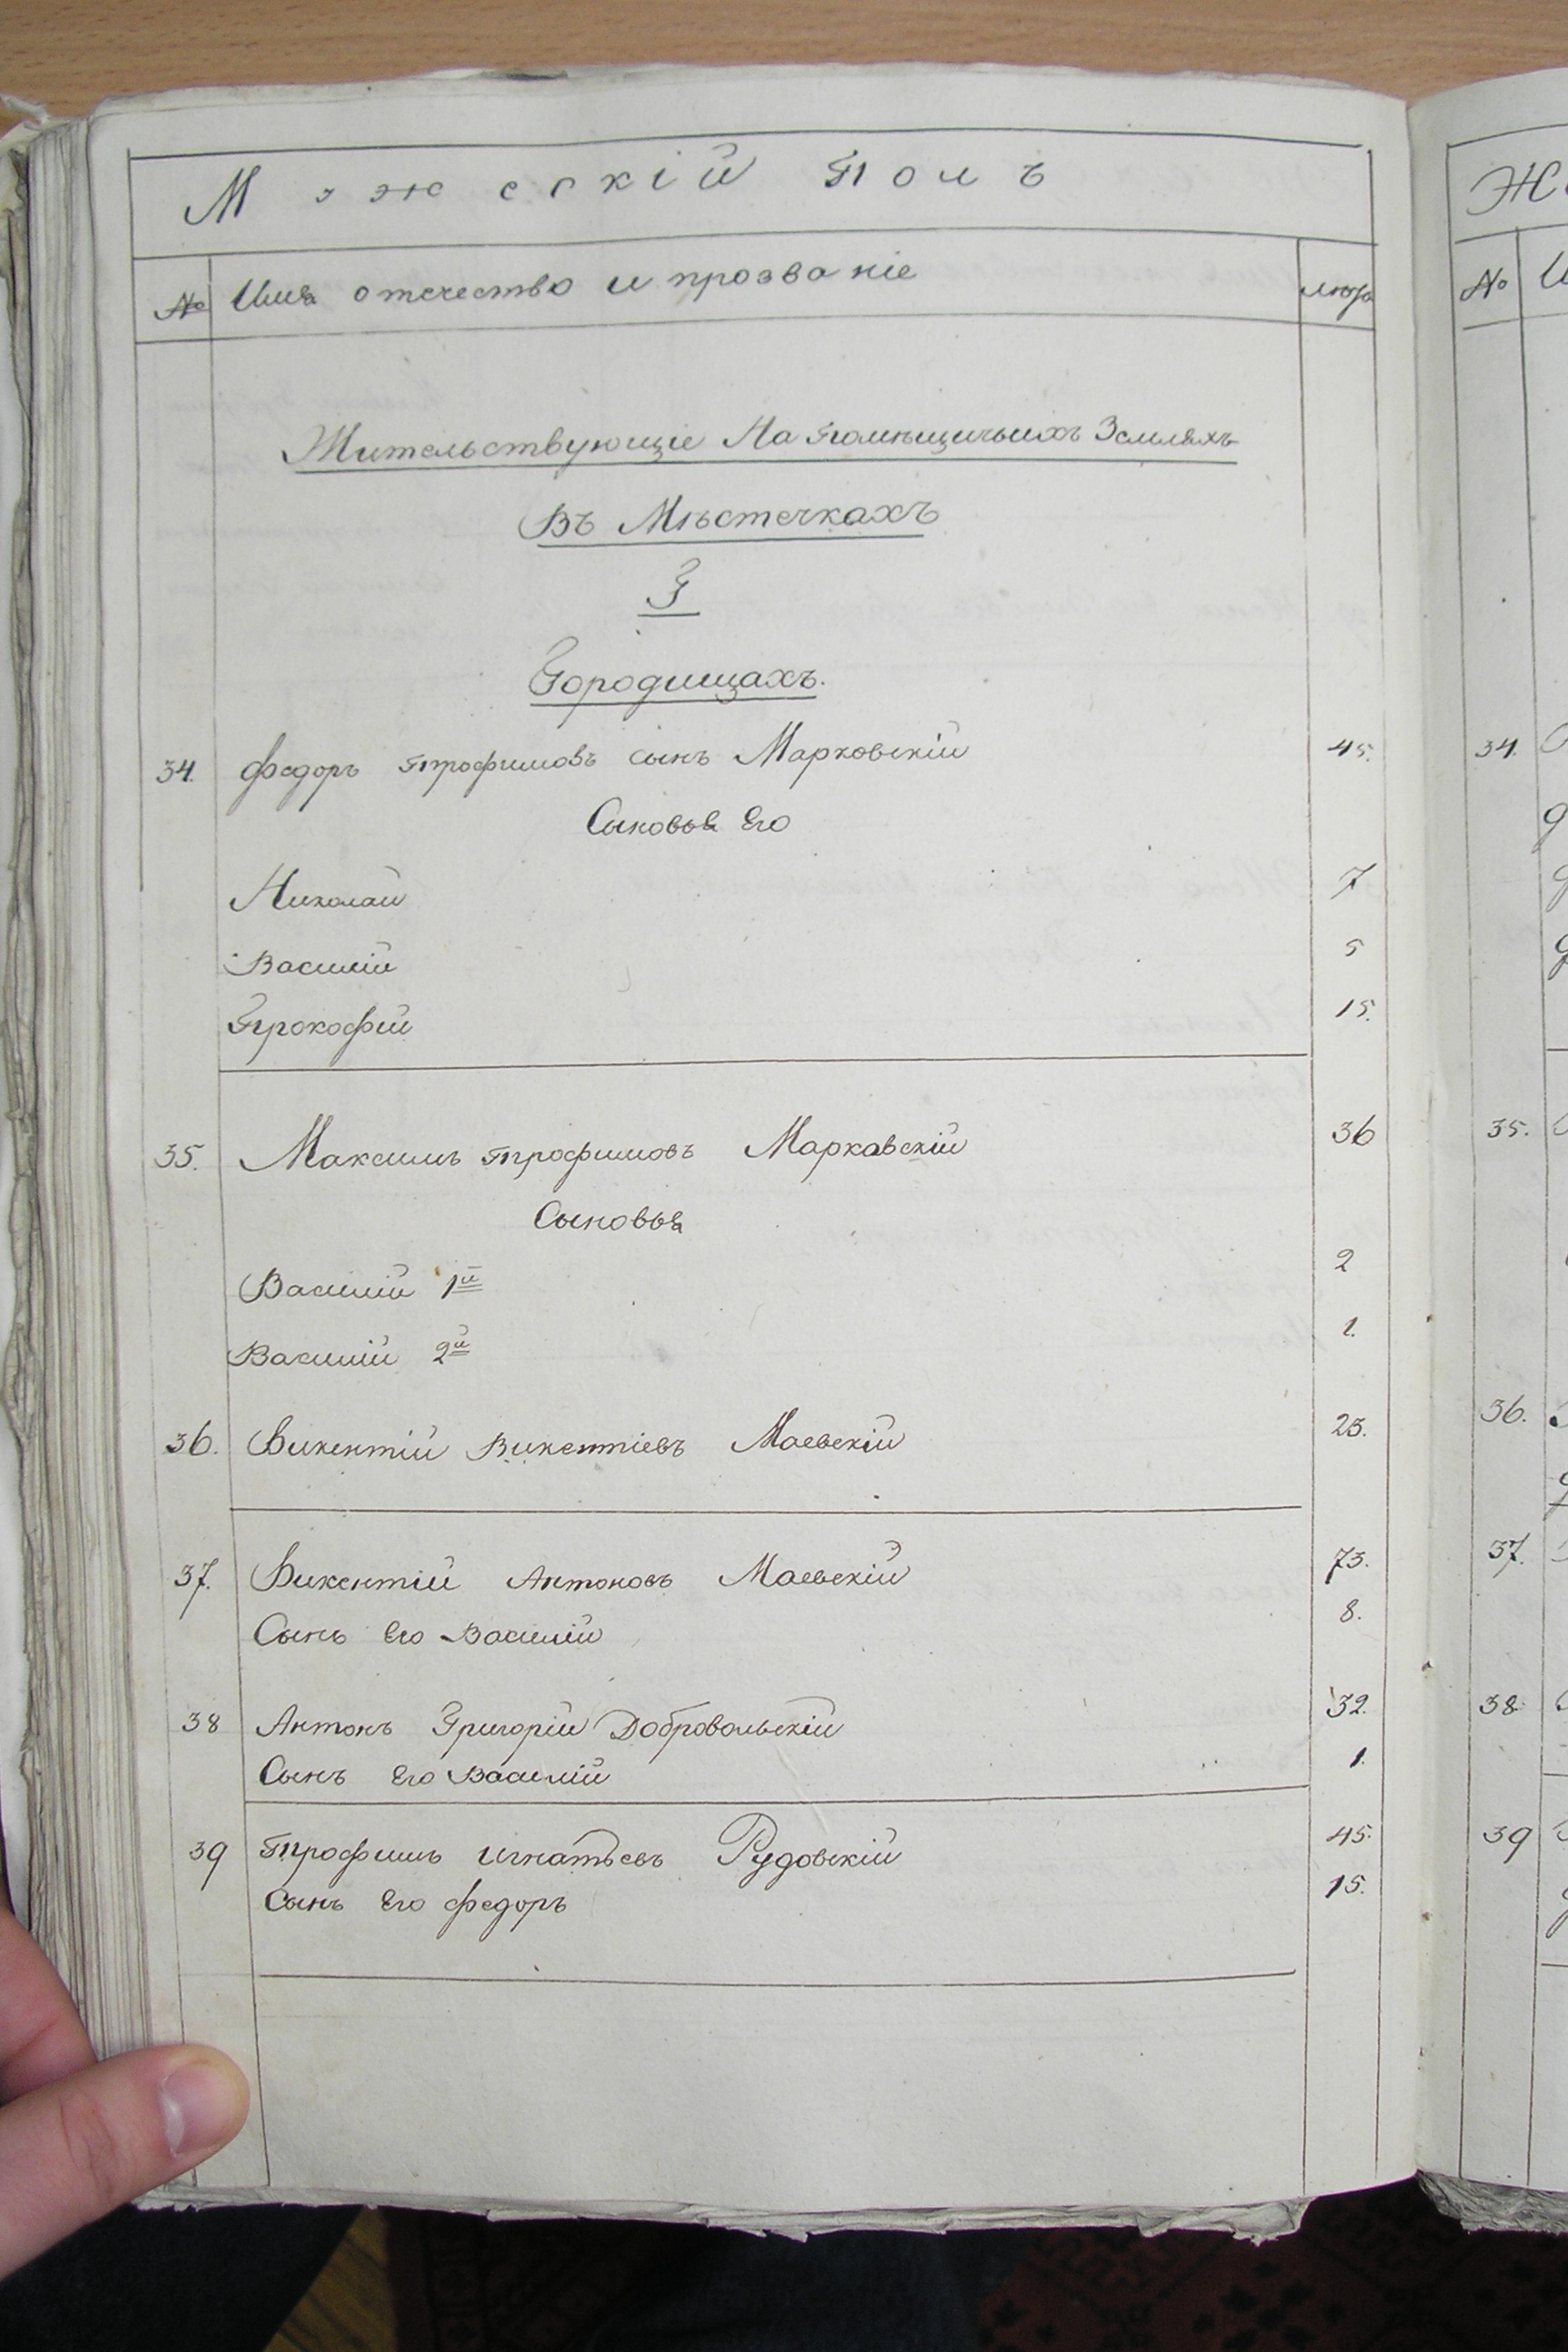 Мужескій Полъ
№ Имя отечество и прозваніе лѣта
Жительствующіе На Помѣщичьихъ Земляхъ
Въ Мѣстечкахъ
3
Городищахъ.
34. Федоръ Трофимовъ сынъ Марковскій 45.
Сыновья Его
Николай 7
Василій 5
Прокофій 15.
35. Максимъ Трофимовъ Марковскій 36
Сыновья
Василій 1й 2
Василій 2й 1.
36. Викентій Викентіевъ Маевскій 23.
37. Викентій Антоновъ Маевскій 73.
Сынъ Его Василій 8.
38 Антонъ Григорій Добровольскій 32.
Сынъ Его Василій 1.
39 Трофимъ Игнатьевъ Рудовскій 45.
Сынъ Его Федоръ 15.
№
34.
35.
36.
37.
38
39